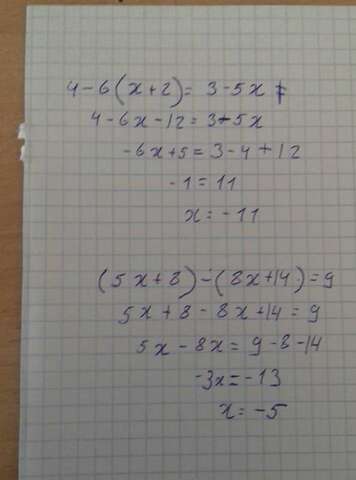 4-6(x+2)= 3-5x
4-6x-12=3-5x
-6x+5=3-4+12
-1=11
x=-11
(5x+8)-(8x+14)=9
5x+8-8x+14=9
5x-8x=9-8-14
-3x=-13
x=-5